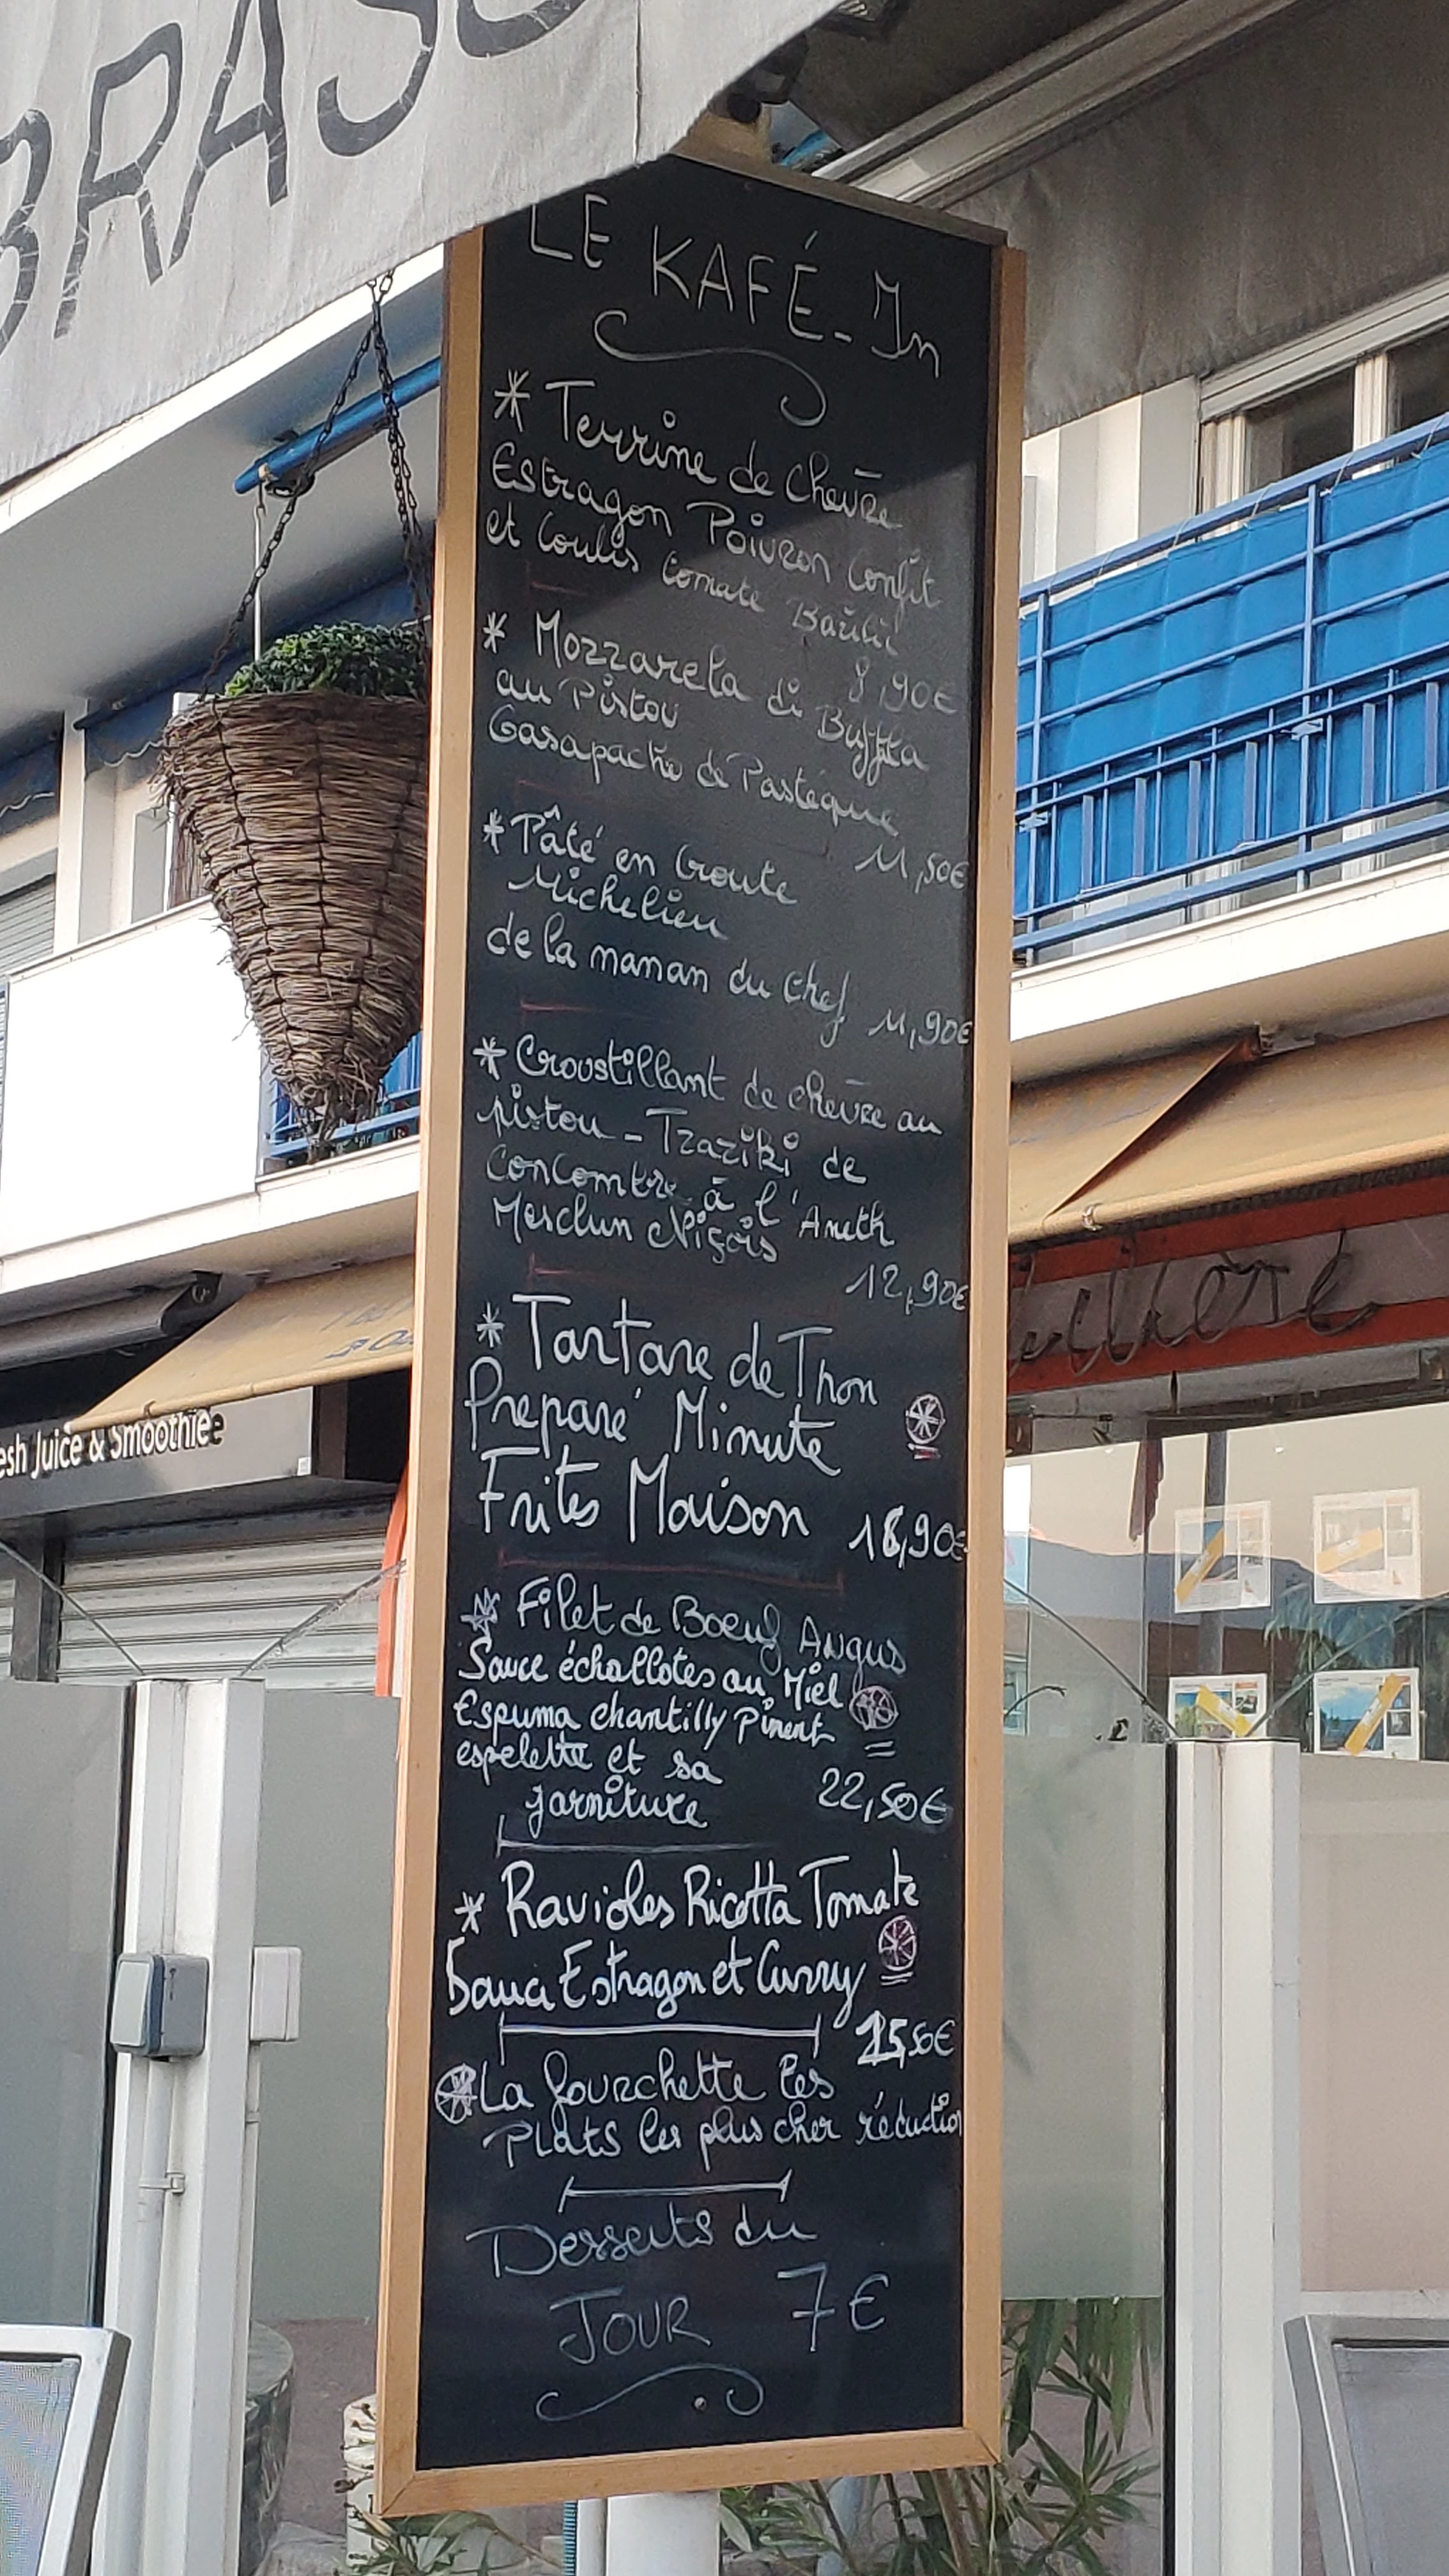 BRASS
LE KAFÉ-In
* Terrine de Chèvre
Estragon Poivron Confit
et Coulis tomate Basilic
8,90€
* Mozzarela di Buffla
au Pistou
Gasapacho de Pastèque
11,50€
* Pâté en Croute
Richelieu
de la maman du Chef 11,90€
* Croustillant de chèvre au
pistou - Tzaziki de
Concombre à l'Aneth
Mesclun Niçois
12,90€
* Tartare de Thon
Preparé Minute
Frites Maison 18,90€
* Filet de Boeuf Angus
Sauce échallotes au Miel
Espuma chantilly Piment
espelette et sa
garniture 22,50€
* Ravioles Ricotta Tomate
Sauce Estragon et Curry
15,50€
La fourchette les
Plats les plus cher réduction
Desserts du
JOUR 7€
esh Juice & Smoothie